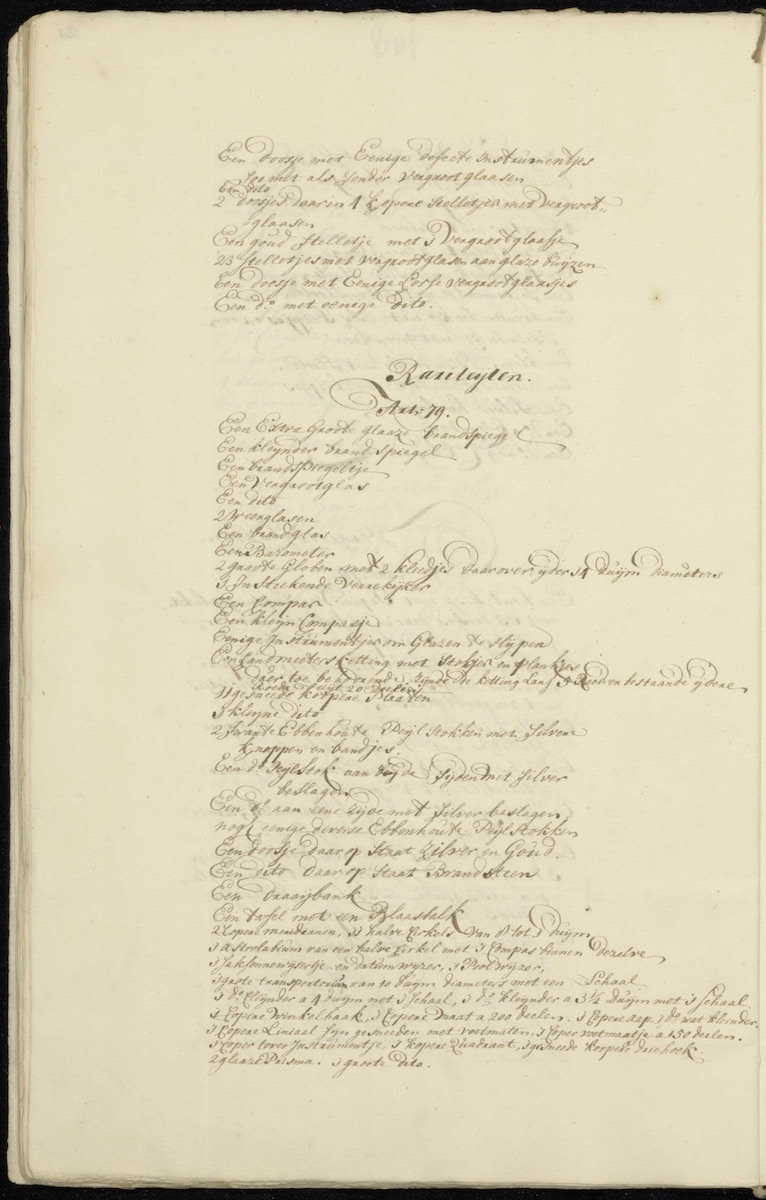 Een doosje met Eenige defecte Instrumentjes
soo met als sonder vergrootglaasen
Een dito
2 doosjes daarin 4 kopere stelletjes met vergroot-
glaasen
Een goud stelletje met 1 vergrootglaasje
23 stelletjes met vergrootglasen aan glaze buijzen
Een doosje met Eenige Losse vergrootglaasjes
Een do. met eenige dito.
Rariteyten.
Art: 79.
Een Extra Groote glaaze brandspiegel
Een kleynder brand spiegel
Een brandspiegeltje
Een Vergrootglas
Een dito
2 Weerglasen
Een brandglas
Een Barometer
2 groote Globen met 2 kleedjes daar over, yder 14 duijm diameters
1 Insteekende Verrekijker
Een Compas
Een kleyn Compasje
Eenige Instrumentjes om Glazen te slijpen
Een Landmeeters ketting met stokjes en plankjes
daer toe behoorende, zijnde de ketting Lang 5 Roeden bestaande ydere
Roede uijt 20 deelen
11 gesneede koopere Plaaten
1 kleyne dito
2 swarte Ebbenhoute Peijl stokken met silvere
knoppen en bandjes.
Een do. Peijlstok aan beijde sijden met silver
beslagen
Een do. aan eene zijde met silver beslagen
nog eenige diverse Ebbenhoute Peijlstokken
Een doosje daar op staat Zilver en Goud.
Een dito daar op staat Brandsteen
Een draaijbank
Een tafel met een Blaasbalk
2 Copere meridianen, 11 halve Cirkels van 8 tot 1 duijm
1 astrolabium van een halve Cirkel met 1 Compas binnen dezelve
1 sak sonnewysertje en datum wyzer, 1 Pool wyzer,
1 groote transportrium van 10 duijm diameters met een Schaal
1 do. kleynder a 4 duijm met 1 schaal, 1 do. kleynder a 3½ duijm met 1 schaal
1 Copere Winkelhaak, 1 Copere maat a 200 deelen. 1 Copere 1 do. wat kleinder.
1 Copere Liniaal fyn gesneeden met voetmaten, 1 Coper voetmaatje a 150 deelen.
1 Coper Instrumentje 1 kopere Quadrant, 1 gesneede koopere driehoek.
2 glaaze Prisma. 1 groote dito.